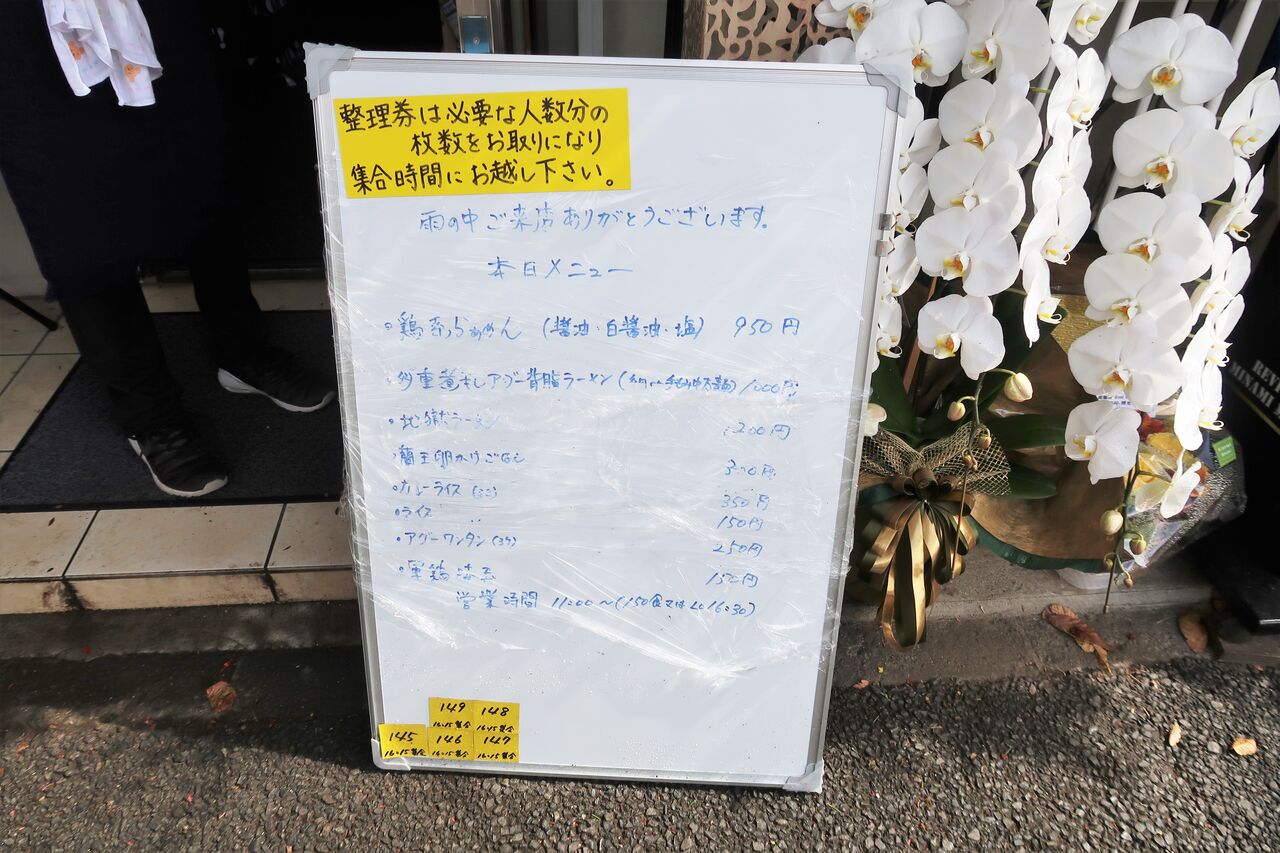 整理券は必要な人数分の
枚数をお取りになり
集合時間にお越し下さい。
雨の中ご来店ありがとうございます。
本日メニュー
・鶏そらぁめん (醤油・白醤油・塩) 950円
アグー背脂ラーメン 1000円
・地獄ラーメン 1200円
・蘭王卵かけごはん 300円
・カレーライス(ミニ) 350円
・ライス 150円
・アグーワンタン(3ケ) 250円
150円
営業時間 11:00〜(150食 16:30)
149 148
16:15集合 16:15集合
145 146 147
16:15集合 16:15集合 16:15集合